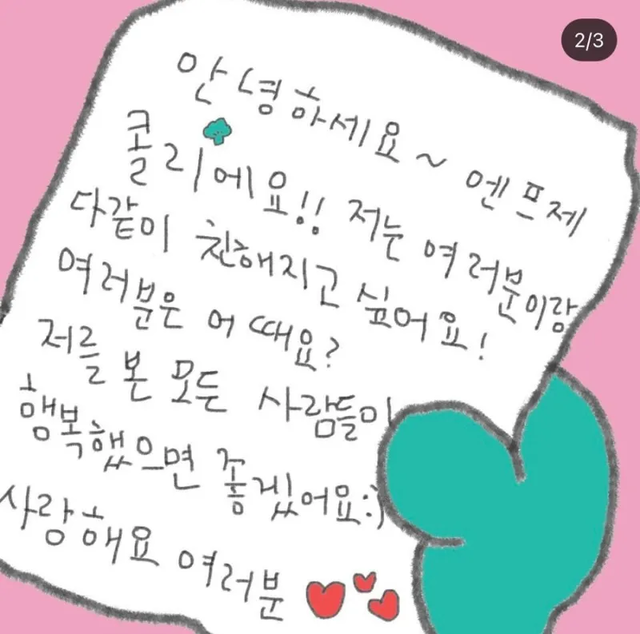 2/3
안녕하세요~ 엔프제
콜리에요!! 저는 여러분이랑
다같이 친해지고 싶어요!
여러분은 어때요?
저를 본 모든 사람들이
행복했으면 좋겠어요:)
사랑해요 여러분